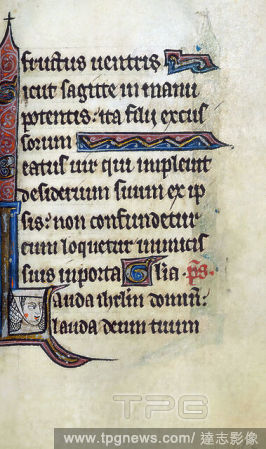 fructus uentris
Sicut sagitte in manu
potentis: ita filij excus
sorum
Beatus uir qui impleuit
desiderium suum ex ip
sis: non confundetur
cum loquetur inimicis
suis in porta Glia. ps.
Lauda iherlm domin:
lauda deum tuum
TPG
www.tpgnews.com / 達志影像